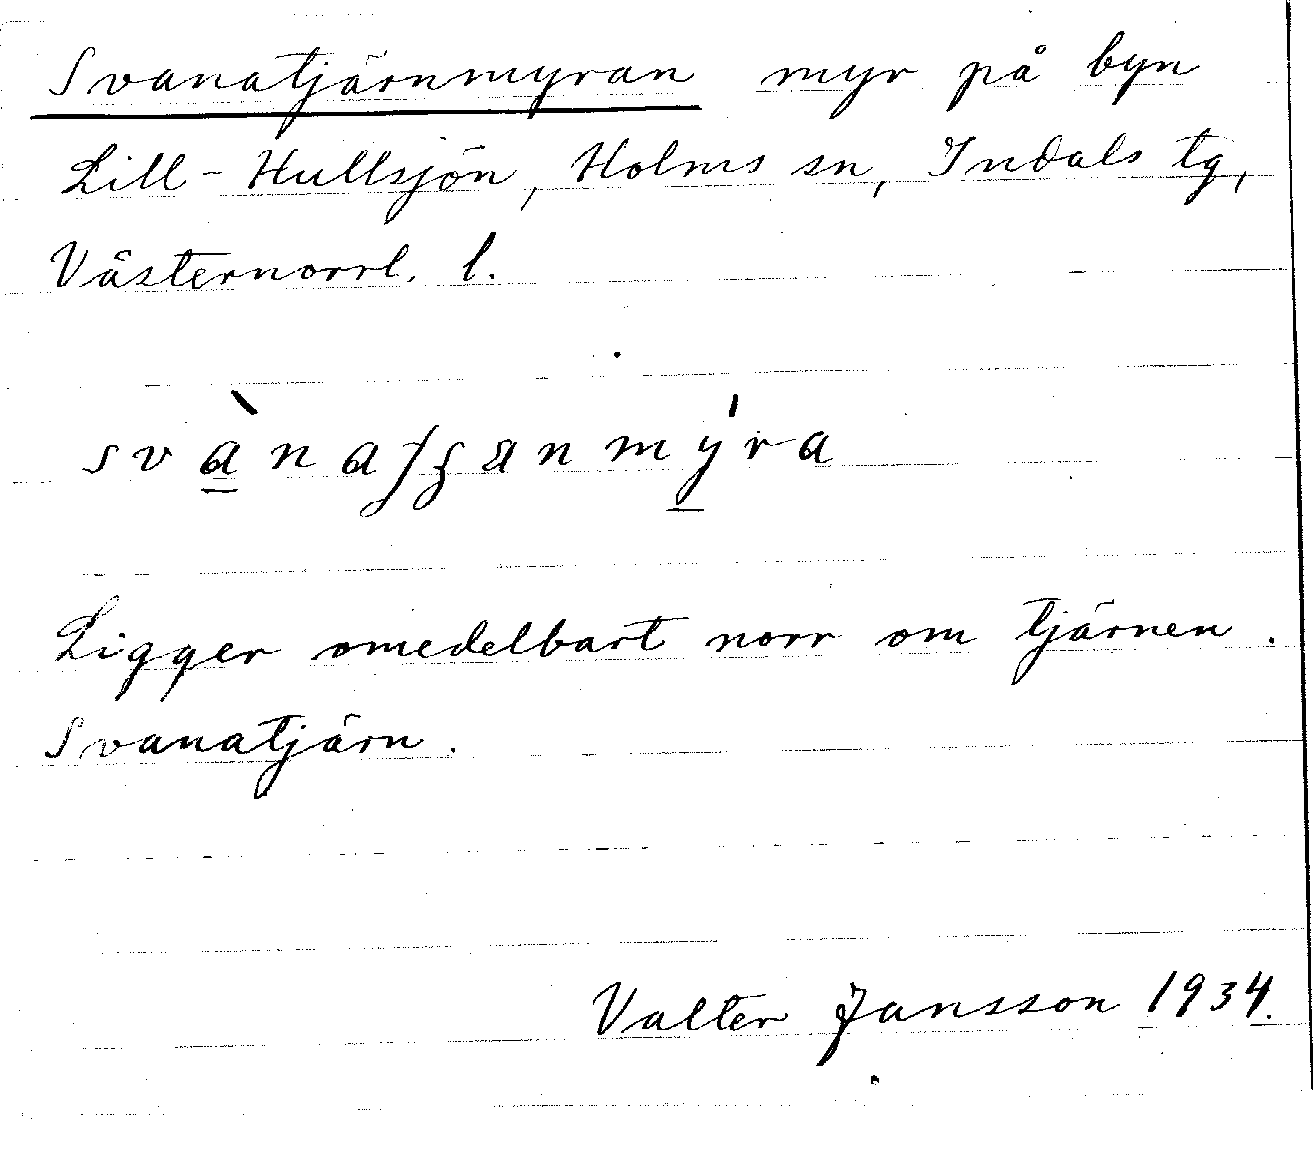 Svanatjärnmyran myr på byn
Lill-Hullsjön, Holms sn, Indals tg,
Västernorrl. l.
Ligger omedelbart norr om tjärnen.
Svanatjärn.
Valter Jansson 1934.